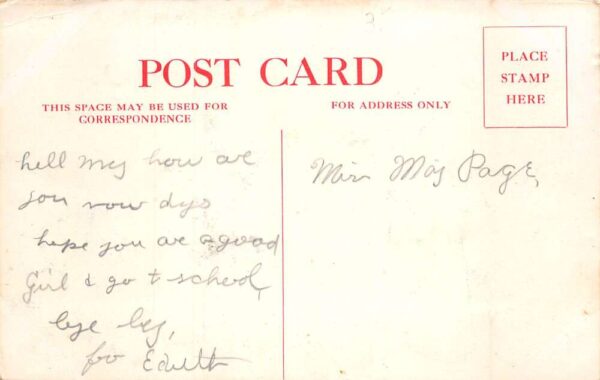 POST CARD
PLACE
STAMP
HERE
THIS SPACE MAY BE USED FOR
CORRESPONDENCE
FOR ADDRESS ONLY
hell my how are
you now dys
hope you are a good
girl & go t school
bye by,
for Edith
Miss May Page,